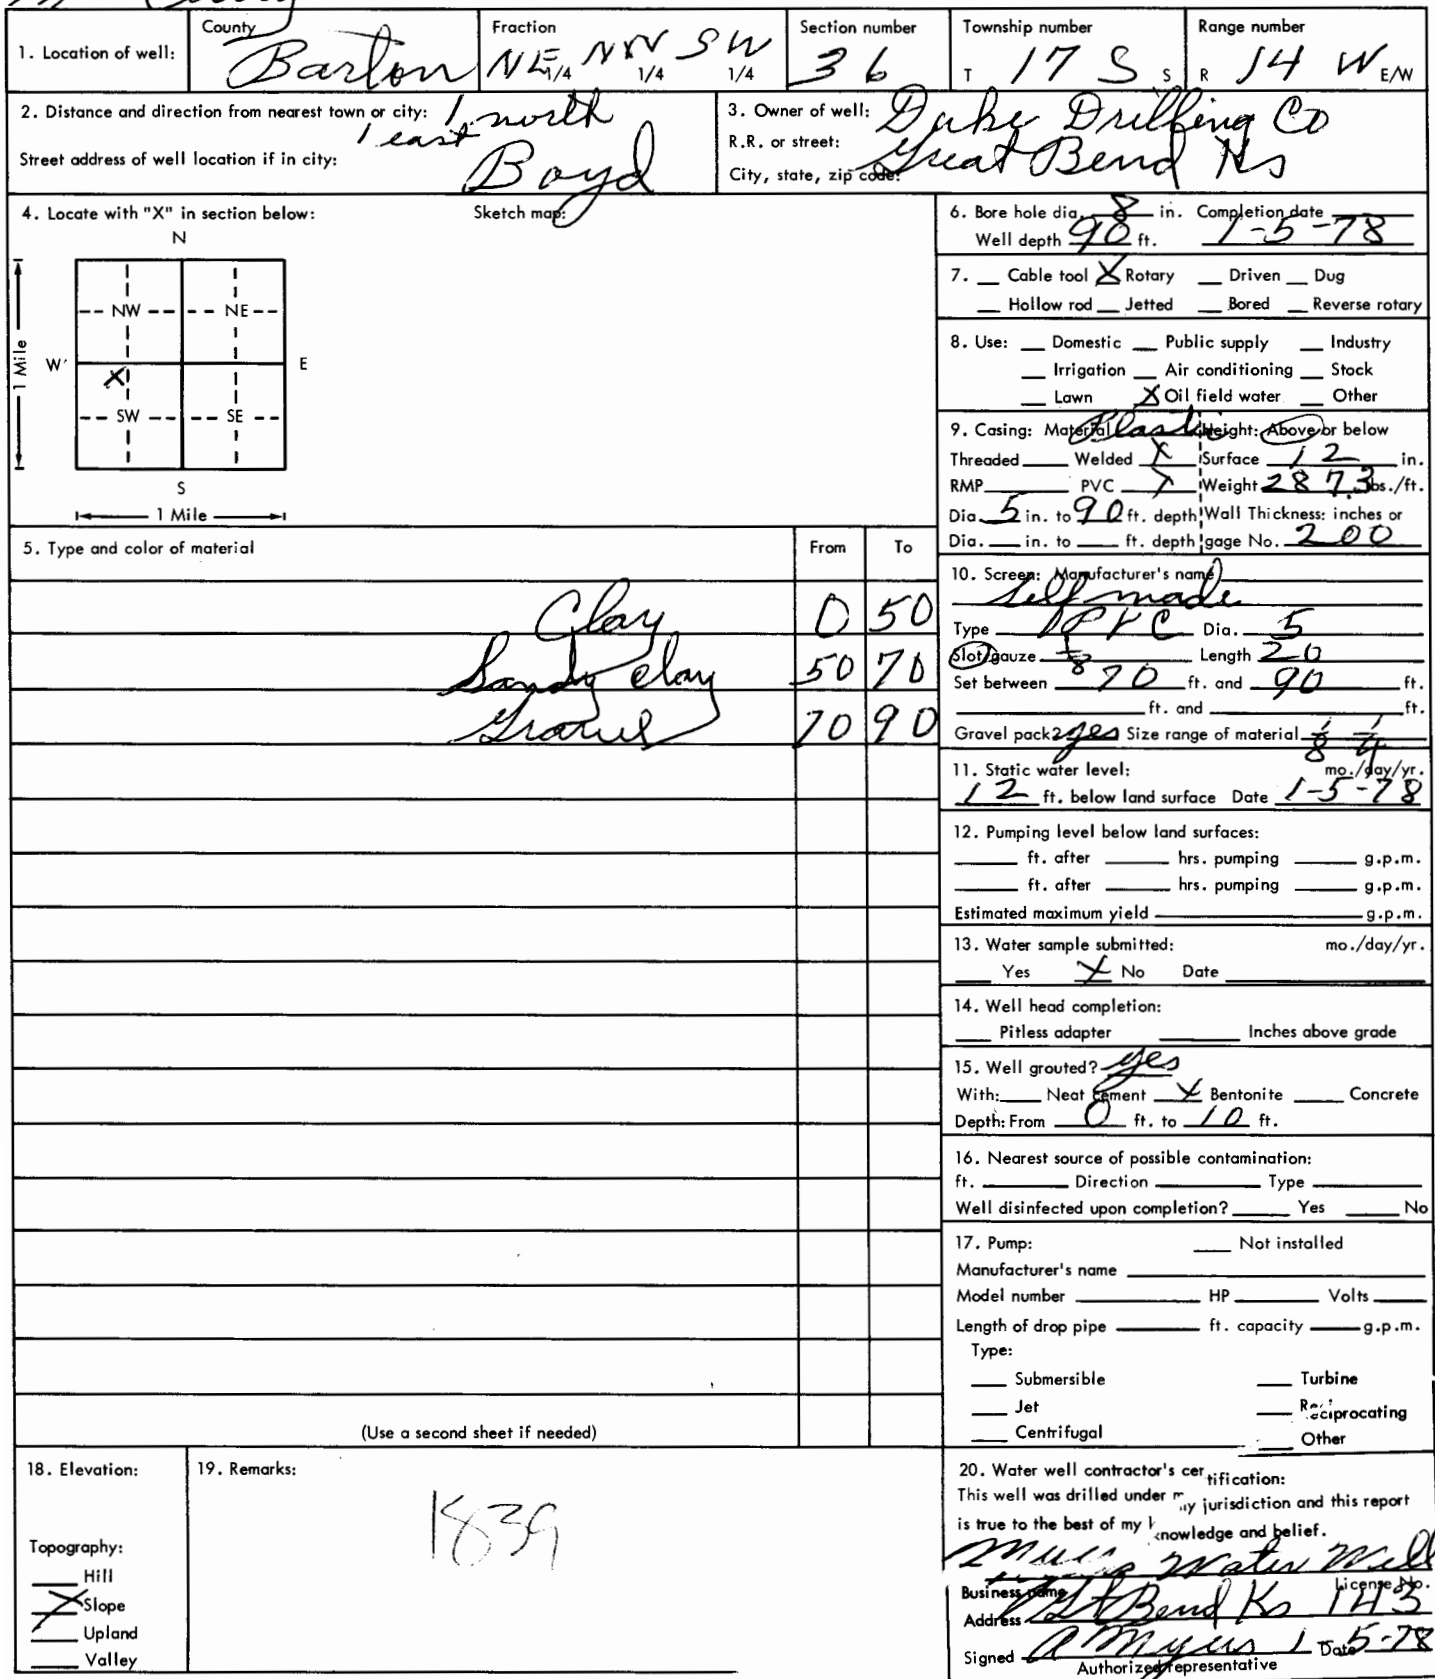 County Fraction Section number Township number Range number
1. Location of well: Barton NE 1/4 NW 1/4 SW 1/4 36 T 17 S S R 14 W E/W
2. Distance and direction from nearest town or city: 1 north
1 east
Street address of well location if in city: Boyd
3. Owner of well: Duke Drilling Co
R.R. or street:
City, state, zip code: Great Bend Ks
4. Locate with "X" in section below: Sketch map:
N
NW NE
W E
X
SW SE
S
1 Mile
1 Mile
5. Type and color of material From To
Clay 0 50
Sandy Clay 50 70
Gravel 70 90
(Use a second sheet if needed)
6. Bore hole dia. 8 in. Completion date
Well depth 90 ft. 1-5-78
7. Cable tool X Rotary Driven Dug
Hollow rod Jetted Bored Reverse rotary
8. Use: Domestic Public supply Industry
Irrigation Air conditioning Stock
Lawn X Oil field water Other
9. Casing: Material Plastic Height: Above or below
Threaded Welded X Surface 12 in.
RMP PVC X Weight 2873 lbs./ft.
Dia. 5 in. to 90 ft. depth Wall Thickness: inches or
Dia. in. to ft. depth gage No. 200
10. Screen: Manufacturer's name
Self made
Type PVC Dia. 5
Slot/gauze 1/8 Length 20
Set between 70 ft. and 90 ft.
ft. and ft.
Gravel pack? yes Size range of material 1/8 1/4
11. Static water level: mo./day/yr.
12 ft. below land surface Date 1-5-78
12. Pumping level below land surfaces:
ft. after hrs. pumping g.p.m.
ft. after hrs. pumping g.p.m.
Estimated maximum yield g.p.m.
13. Water sample submitted: mo./day/yr.
Yes X No Date
14. Well head completion:
Pitless adapter Inches above grade
15. Well grouted? yes
With: Neat cement X Bentonite Concrete
Depth: From 0 ft. to 10 ft.
16. Nearest source of possible contamination:
ft. Direction Type
Well disinfected upon completion? Yes No
17. Pump: Not installed
Manufacturer's name
Model number HP Volts
Length of drop pipe ft. capacity g.p.m.
Type:
Submersible Turbine
Jet Reciprocating
Centrifugal Other
18. Elevation:
Topography:
Hill
X Slope
Upland
Valley
19. Remarks:
1839
20. Water well contractor's certification:
This well was drilled under my jurisdiction and this report
is true to the best of my knowledge and belief.
Myers Water Well
Business name License No.
Address Gt Bend Ks 143
Signed A Myers Date 1-5-78
Authorized representative